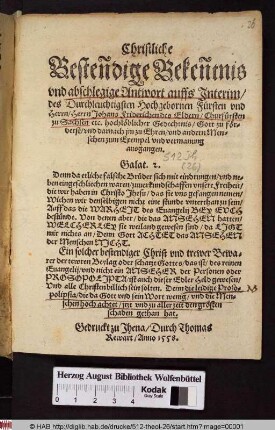 26
Christliche
Bestendige Bekentnis
vnd abschlegige Antwort auffs Interim/
des Durchleuchtigsten Hochgebornen Fürsten vnd
Herrn/ Herrn Johans Friderichen des Eldern/ Churfürsten
zu Sachssen etc. hochlöblicher Gedechtnis/ Gott zu för-
derst/ vnd darnach jm zu Ehren/ vnd andern Men-
schen zum Exempel vnd vermanung
ausgangen.
Galat. 2.
Denn da etliche falsche Brüder sich mit eindrungen/ vnd ne-
ben eingeschlichen waren/ zuuerkundschaffen vnsere Freiheit/
die wir haben in Christo Jhesu/ das sie vns gefangen nemen/
Wichen wir denselbigen nicht eine stunde vnterthan zu sein/
Auff das die WARHEIT des Euangelij BEY EVCH
bestünde. Von denen aber/ die das ANSEHEN hatten/
WELCHERLEY sie weiland gewesen sind/ da LIGT
mir nichts an/ Denn Gott ACHTET das ANSEHEN
der Menschen NICHT.
Ein solcher bestendiger Christ vnd trewer Bewa-
rer der tewren Beylag oder schatz Gottes/ das ist/ des reinen
Euangelij/ vnd nicht ein ANSEHER der Personen oder
PROSOPOLIPTA/ ist auch dieser Edler Held gewesen/
Vnd alle Christen billich sein sollen. Denn die leidige Proso-
polipsia/ die da Gott vnd sein Wort wenig/ vnd die Men-
schen hoch achtet/ hat vnd zu aller zeit den grösten
schaden gethan hat.
Gedruckt zu Jhena/ Durch Thomas
Rewart/ Anno 1558.
Herzog August Bibliothek Wolfenbüttel
Kodak
Color Control Patches
© HAB http://diglib.hab.de/drucke/512-theol-26/start.htm?image=00001